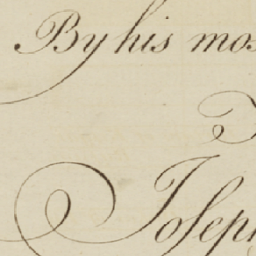 By his mos
Joseph